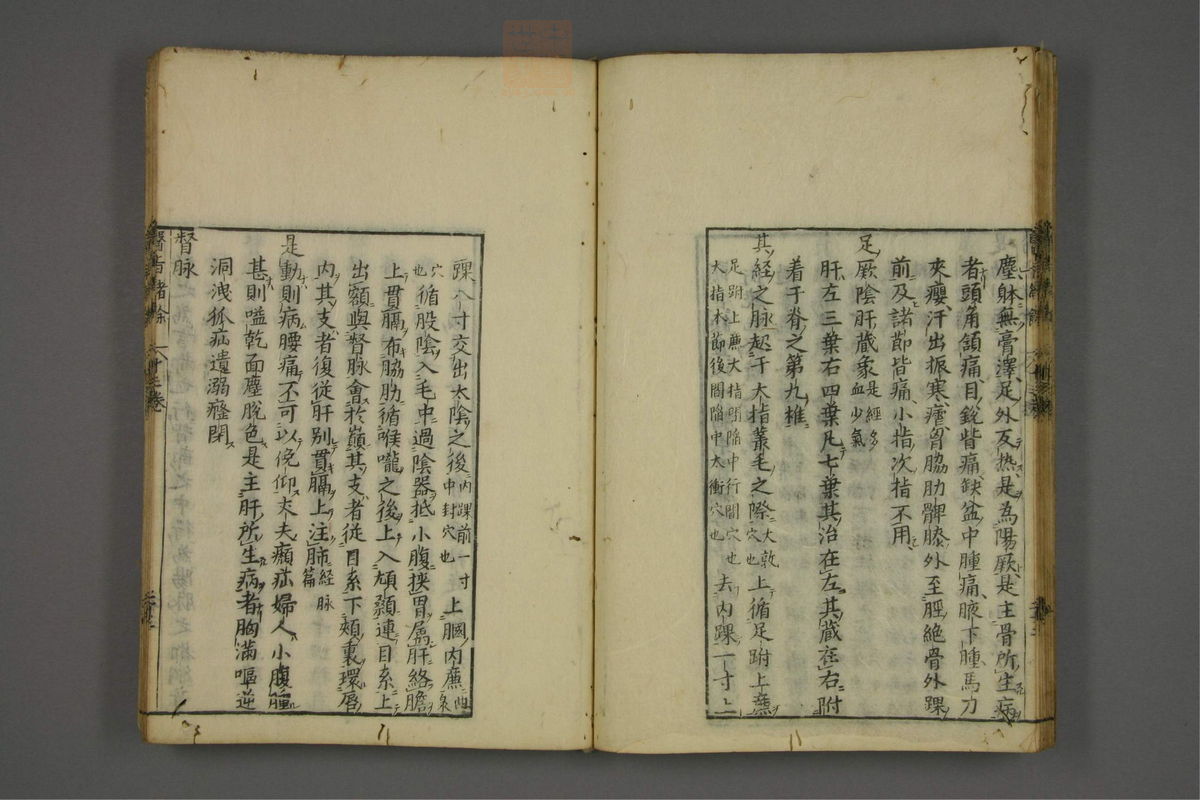 塵躰無膏澤足外反热是為陽厥是主骨所生病
者頭角頷痛目銳眥痛缺盆中腫痛腋下腫馬刀
夾癭汗出振寒瘧胷脇肋髀膝外至脛絶骨外踝
前及諸節皆痛小指次指不用
足厥陰肝藏象是經多血少氣
肝左三葉右四葉凡七葉其治在左其藏在右附
着于脊之第九椎
其經之脉起于大指叢毛之際大敦穴也上循足跗上廉
足跗上廉大指間陥中行間穴也大指本節後間陥中太衝穴也去內踝一寸上
踝八寸交出太陰之後內踝前一寸中封穴也上膕內廉曲泉
穴也循股陰入毛中過陰器抵小腹挟胃属肝絡膽
上貫膈布脇肋循喉嚨之後上入頏顙連目系上
出額與督脉會於巔其支者從目系下頰裏環唇
內其支者復從肝别貫膈上注肺經脉篇
是動則病腰痛不可以俛仰丈夫㿗疝婦人小腹腫
甚則嗌乾面塵脫色是主肝所生病者胸滿嘔逆
洞洩狐疝遺溺癃閉
督脉